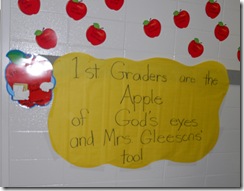 1st Graders are the
Apple
of God's eyes
and Mrs Gleesons'
too!